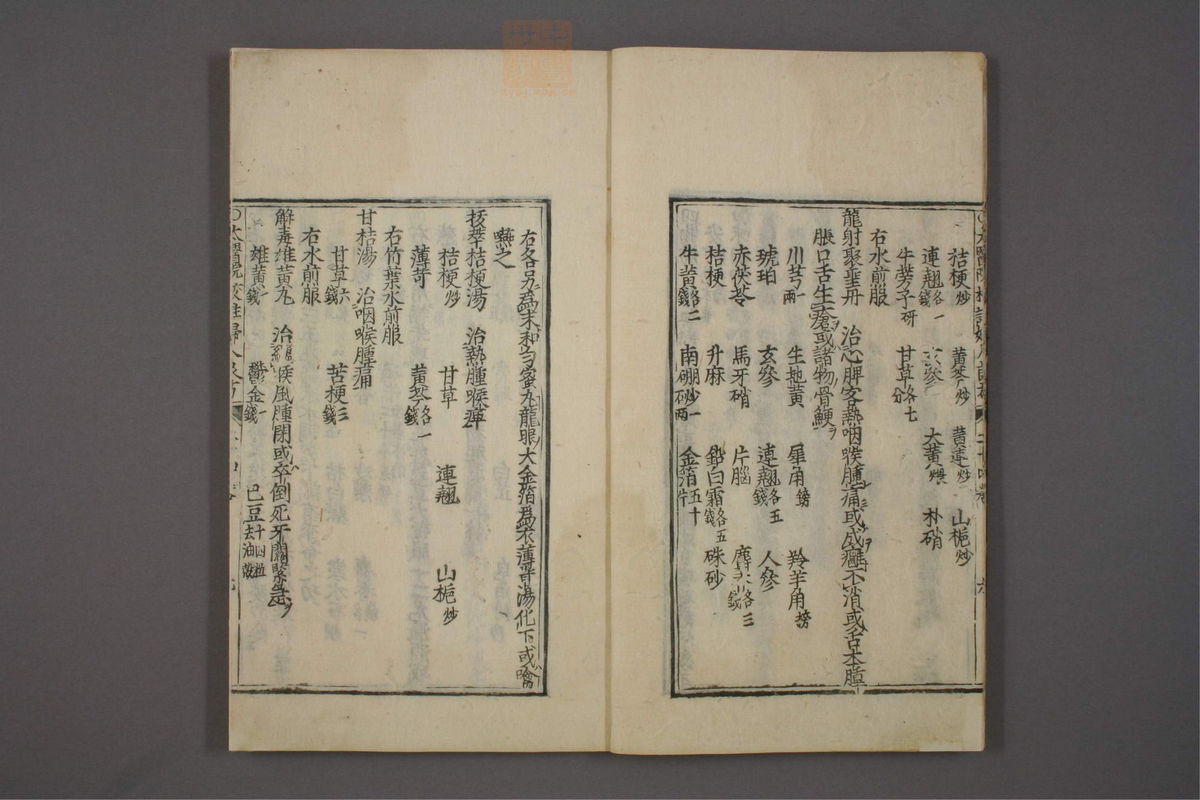 桔梗炒 黄芩炒 黄連炒 山梔炒
連翹各一錢 玄參 大黄煨 朴硝
牛蒡子研 甘草各七分
右水煎服
龍射聚聖丹 治心脾客熱咽喉腫痛或成癰不消或舌本腫
脹口舌生瘡或諸物骨鯁
川芎一兩 生地黄 犀角鎊 羚羊角鎊
琥珀 玄參 連翹各五錢 人參
赤茯苓 馬牙硝 片腦 麝香各三錢
桔梗 升麻 鉛白霜各五錢 硃砂
牛黄各二錢 南硼砂一兩 金箔五十片
右各另爲末和匀蜜丸龍眼大金箔爲衣薄苛湯化下或噙
嚥之
拔萃桔梗湯 治熱腫喉痺
桔梗炒 甘草 連翹 山梔炒
薄苛 黄芩各一錢
右竹葉水煎服
甘桔湯 治咽喉腫痛
甘草六錢 苦梗三錢
右水煎服
解毒雄黄丸 治喉風腫閉或卒倒死牙關緊急
雄黄一錢 鬱金一錢 巴豆十四粒去油殼